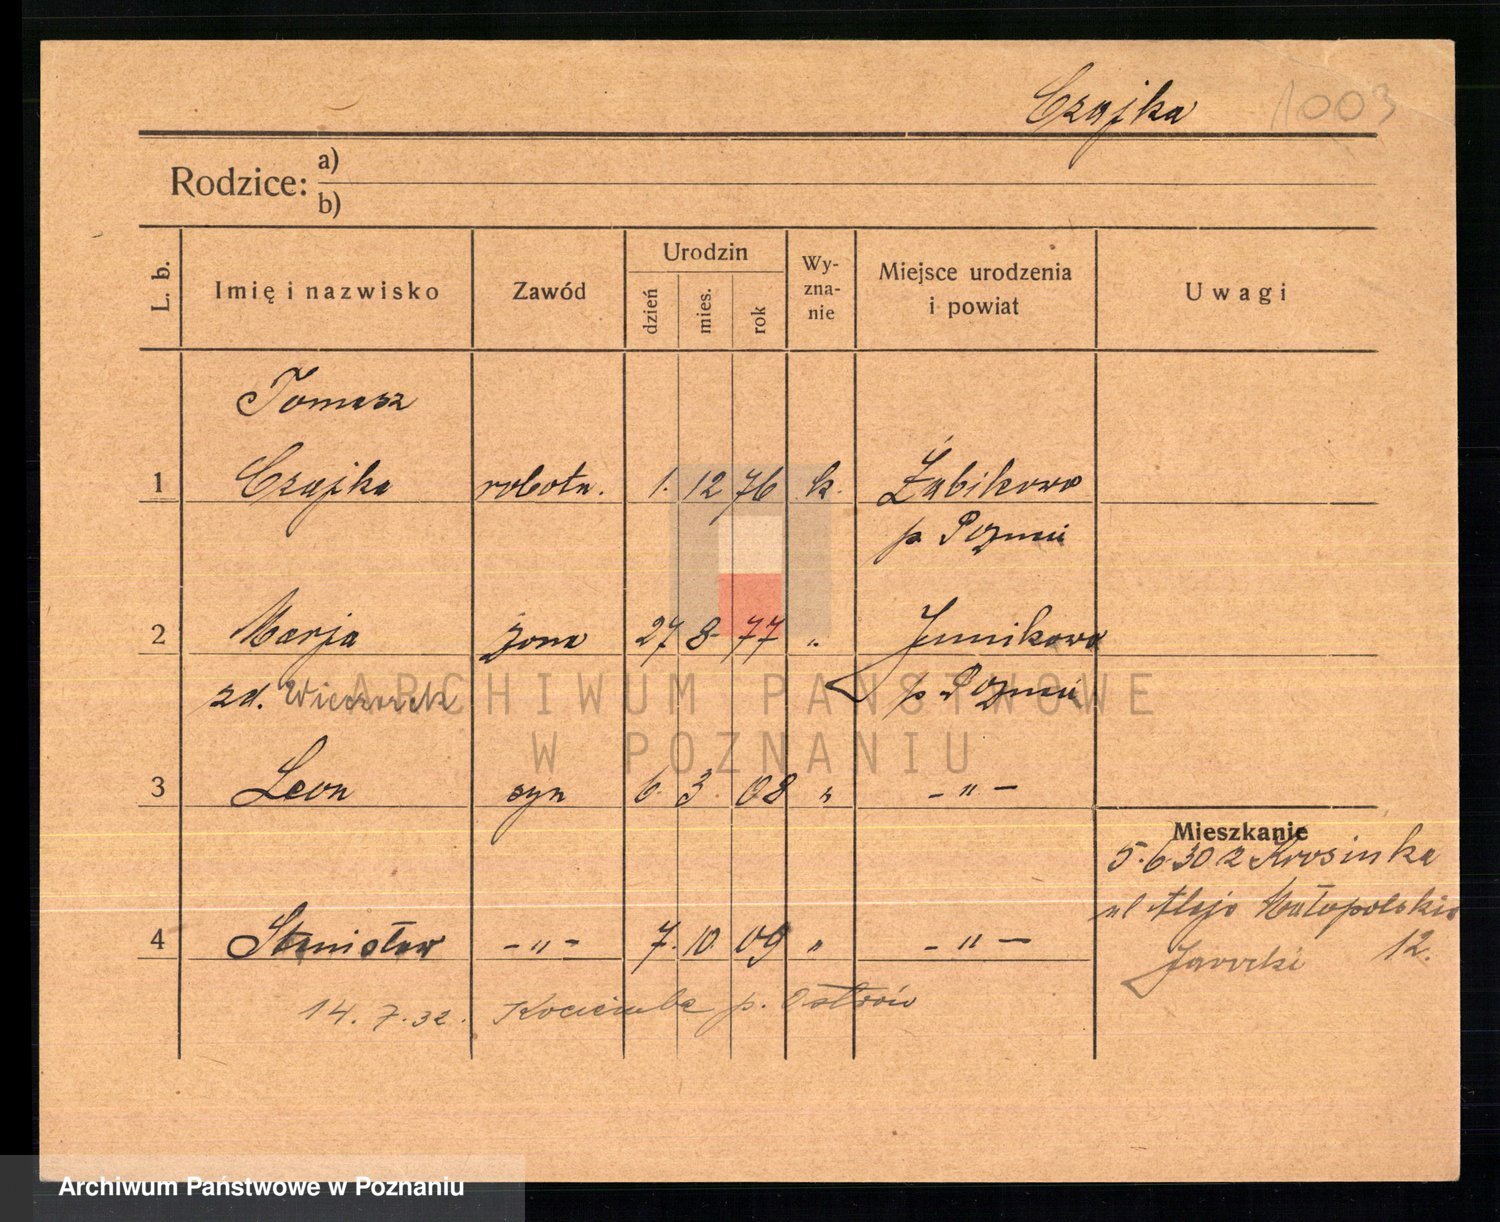 Czajka 1003
Rodzice: a)
b)
L. b. Imię i nazwisko Zawód Urodzin dzień mies. rok Wy-zna-nie Miejsce urodzenia i powiat Uwagi
Tomasz
1 Czajka robotn. 1. 12 76 k. Żabikowo
p. Poznań
2 Marja żona 27 8 77 " Junikowo
zd. Wieczorek p Poznań
3 Leon syn 6. 3. 08 " - " -
Mieszkanie
5.6.30 z Krosinka
ul Aleje Małopolskie
4 Stanisław - " - 7. 10. 09 " - " -
12.
14.7.32. p. Ostrów
ARCHIWUM PAŃSTWOWE
W POZNANIU
Archiwum Państwowe w Poznaniu